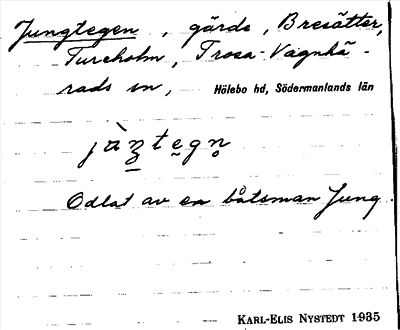 Jungtegen, gärde, Bresätter,
Tureholm, Trosa-Vagnhä-
rads sn, Hölebo hd, Södermanlands län
Odlat av en båtsman Jung.
KARL-ELIS NYSTEDT 1935